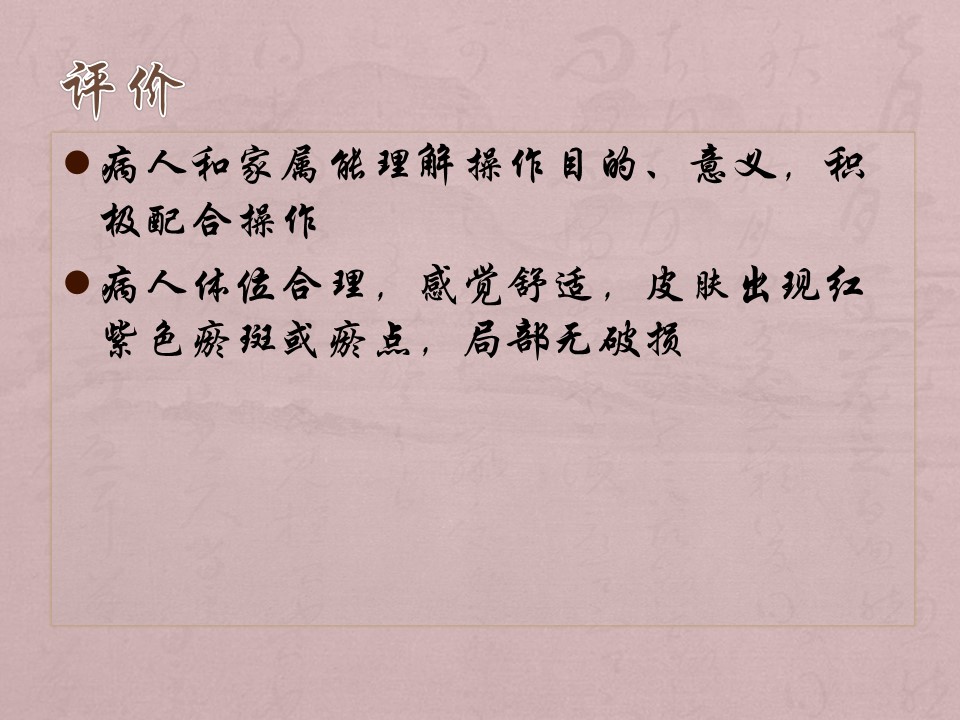 评价
病人和家属能理解操作目的、意义，积
极配合操作
病人体位合理，感觉舒适，皮肤出现红
紫色瘀斑或瘀点，局部无破损